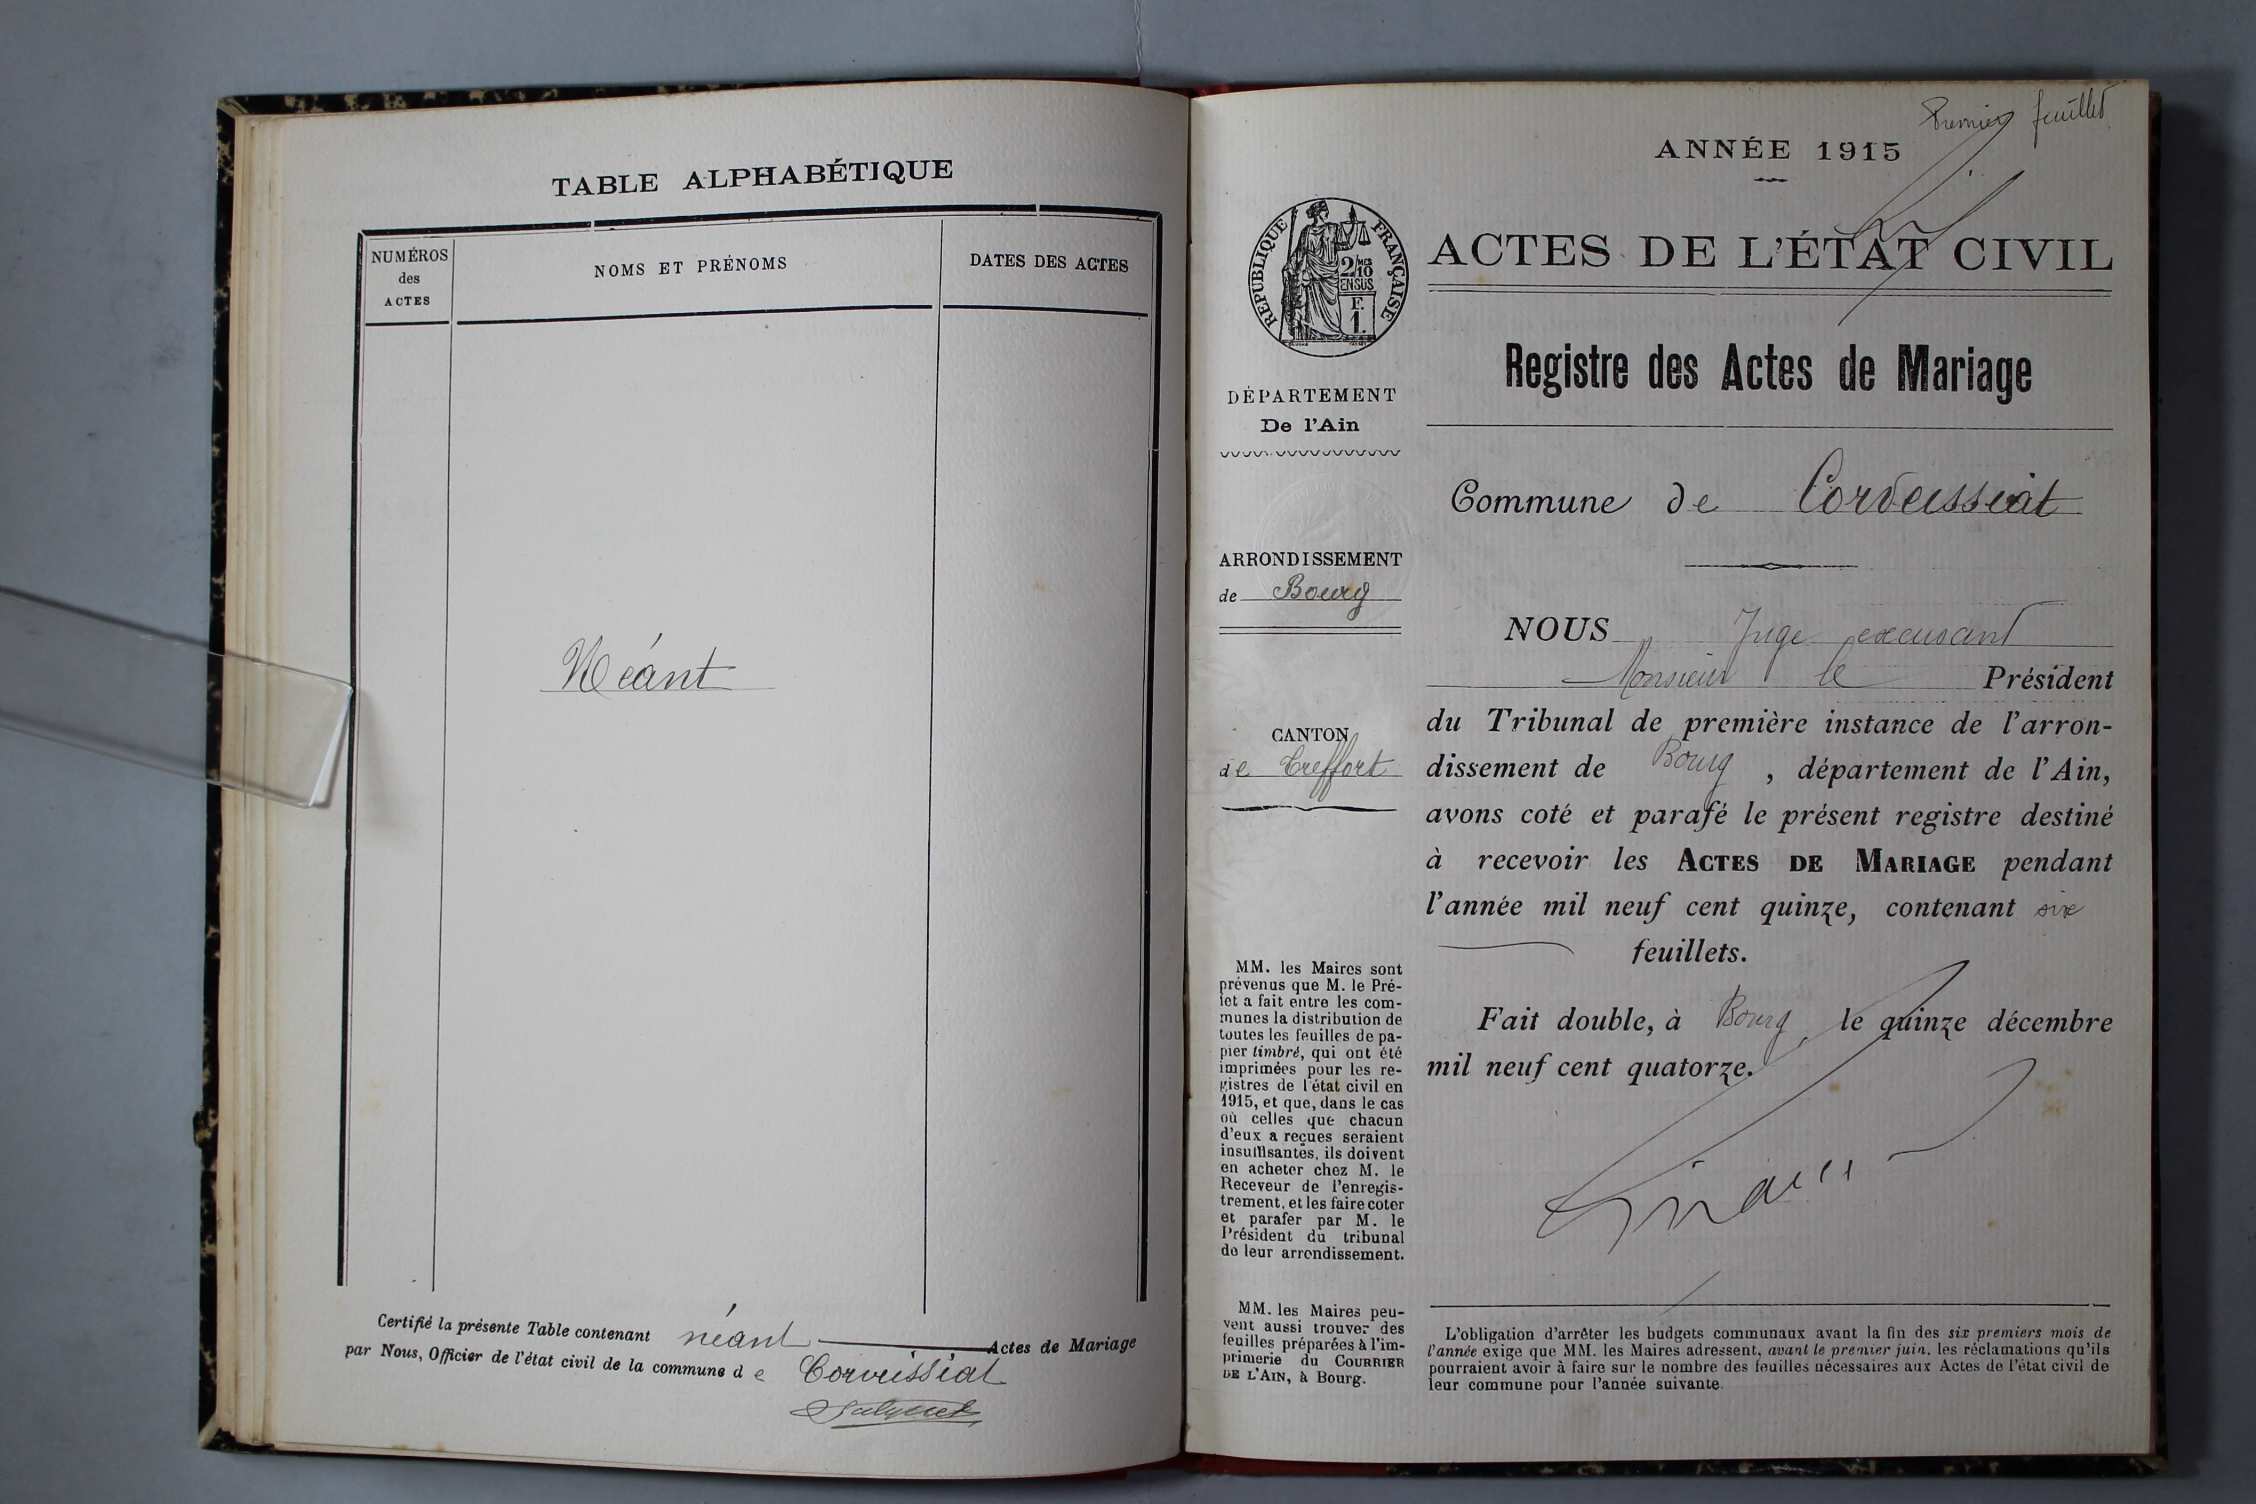 TABLE ALPHABÉTIQUE
NUMÉROS
des
ACTES
NOMS ET PRÉNOMS
DATES DES ACTES
Néant
Certifié la présente Table contenant néant Actes de Mariage
par Nous, Officier de l'état civil de la commune de Corveissiat
Premier feuillet
ANNÉE 1915
RÉPUBLIQUE FRANÇAISE
2/10
MES
EN SUS
F.
1.
ACTES DE L'ÉTAT CIVIL
Registre des Actes de Mariage
DÉPARTEMENT
De l'Ain
Commune de Corveissiat
ARRONDISSEMENT
de Bourg
CANTON
de Treffort
MM. les Maires sont
prévenus que M. le Pré-
fet a fait entre les com-
munes la distribution de
toutes les feuilles de pa-
pier timbré, qui ont été
imprimées pour les re-
gistres de l'état civil en
1915, et que, dans le cas
où celles que chacun
d'eux a reçues seraient
insuffisantes, ils doivent
en acheter chez M. le
Receveur de l'enregis-
trement, et les faire coter
et parafer par M. le
Président du tribunal
de leur arrondissement.
MM. les Maires peu-
vent aussi trouver des
feuilles préparées à l'im-
primerie du COURRIER
DE L'AIN, à Bourg.
NOUS Juge excusant
Monsieur le Président
du Tribunal de première instance de l'arron-
dissement de Bourg, département de l'Ain,
avons coté et parafé le présent registre destiné
à recevoir les ACTES DE MARIAGE pendant
l'année mil neuf cent quinze, contenant six
feuillets.
Fait double, à Bourg, le quinze décembre
mil neuf cent quatorze.
L'obligation d'arrêter les budgets communaux avant la fin des six premiers mois de
l'année exige que MM. les Maires adressent, avant le premier juin, les réclamations qu'ils
pourraient avoir à faire sur le nombre des feuilles nécessaires aux Actes de l'état civil de
leur commune pour l'année suivante.